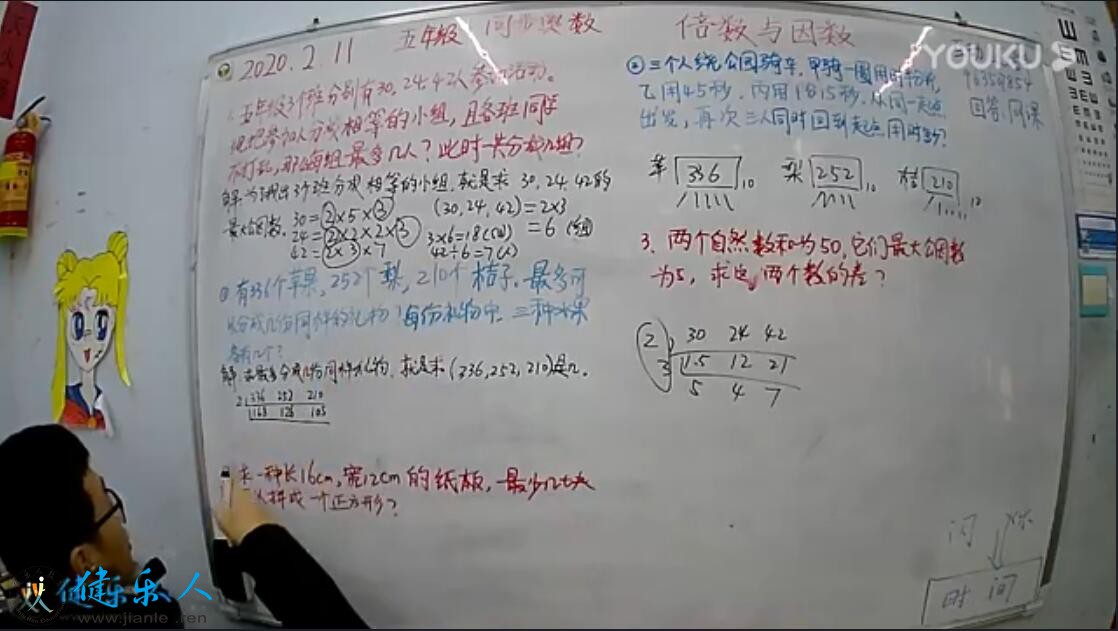 2020.2.11 五年级 同步奥数 倍数与因数
1. 五年级3个班分别有30,24,42人参加活动。
现把参加人分成相等的小组,且各班同学
不打乱,那么每组最多几人?此时一共分成几组?
相等的小组,就是求 30,24,42的
最大公因数。 30=2×5×3 (30,24,42)=2×3
24=2×2×2×3 3×6=18 =6
42=2×3×7 42÷6=7
②有336个苹果,252个梨,210个桔子。最多可
以分成几份同样的礼物?每份礼物中,三种水果
各有几个?
解:求最多分成几份同样礼物,就是求(336,252,210)是几。
2 336 252 210
168 126 105
一种长16cm,宽12cm的纸板,最少几块
拼成一个正方形?
YOUKU
④三个人绕公园骑车,甲骑一圈用时
乙用45秒,丙用1分15秒.从同一起点
出发,再次三人同时回到起点用时多少?
回答.网课
苹 336 10 梨 252 10 桔 210 10
3. 两个自然数和为50,它们最大公因数
为5,求这两个数的差?
2 30 24 42
3 15 12 21
5 4 7
闪 烁
时 间
健乐乐人
www.jianle .ren